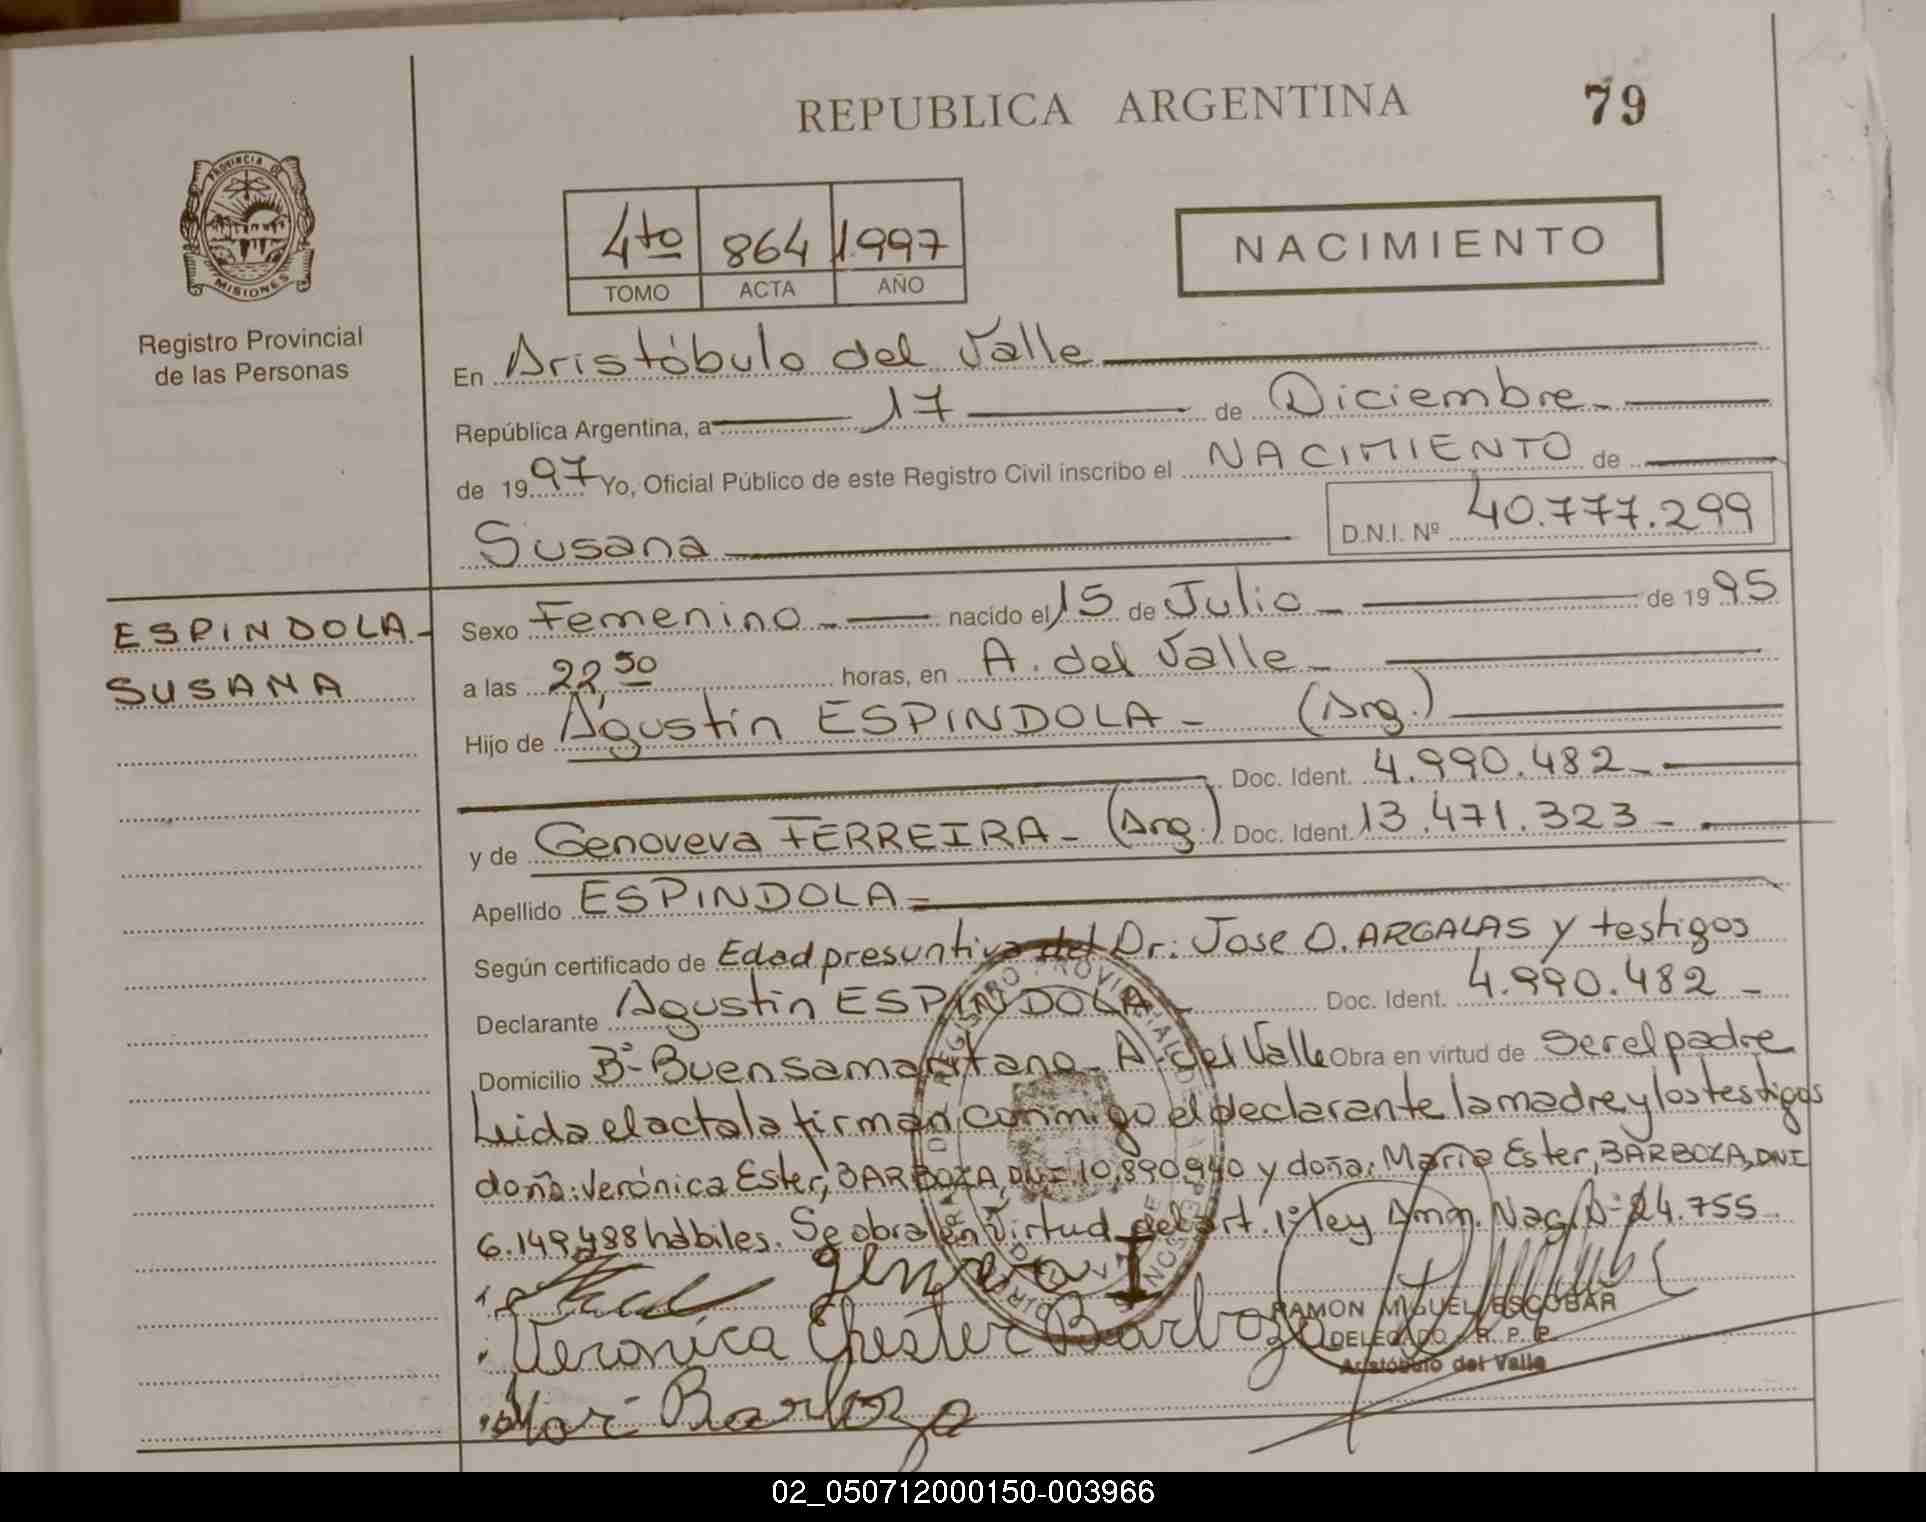 REPUBLICA ARGENTINA
79
PROVINCIA DE
MISIONES
Registro Provincial
de las Personas
4to 864 1.997
TOMO ACTA AÑO
NACIMIENTO
En Aristóbulo del Valle
República Argentina, a 17 de Diciembre
de 1997 Yo, Oficial Público de este Registro Civil inscribo el NACIMIENTO de
Susana D.N.I. Nº 40.777.299
ESPINDOLA-
SUSANA
Sexo Femenino nacido el 15 de Julio de 1995
a las 22,50 horas, en A. del Valle
Hijo de Agustín ESPINDOLA - (Arg.)
Doc. Ident. 4.990.482
y de Genoveva FERREIRA - (Arg.) Doc. Ident. 13.471.323
Apellido ESPINDOLA
Según certificado de Edad presuntiva del Dr: Jose O. ARGALAS y testigos
Declarante Agustin ESPINDOLA - Doc. Ident. 4.990.482 -
Domicilio Bº- Buen samaritano - A. del Valle Obra en virtud de ser el padre
Leida el acta la firman conmigo el declarante la madre y los testigos
doña: Verónica Ester, BARBOZA, DNI. 10.890.940 y doña: María Ester, BARBOZA, DNI
6.149.488 hábiles. Se obra en virtud del art. 1º ley Amn. Nac. Nº 24.755
Genoveva
Veronica Ehester Barboza
RAMON MIGUEL ESCOBAR
DELEGADO R. P. P.
Aristóbulo del Valle
Mari Barboza
02_050712000150-003966